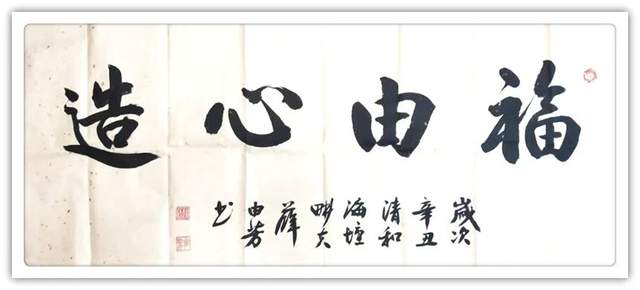 福由心造
歲次
辛丑
清和
海壇
畊夫
薛
由芳
书